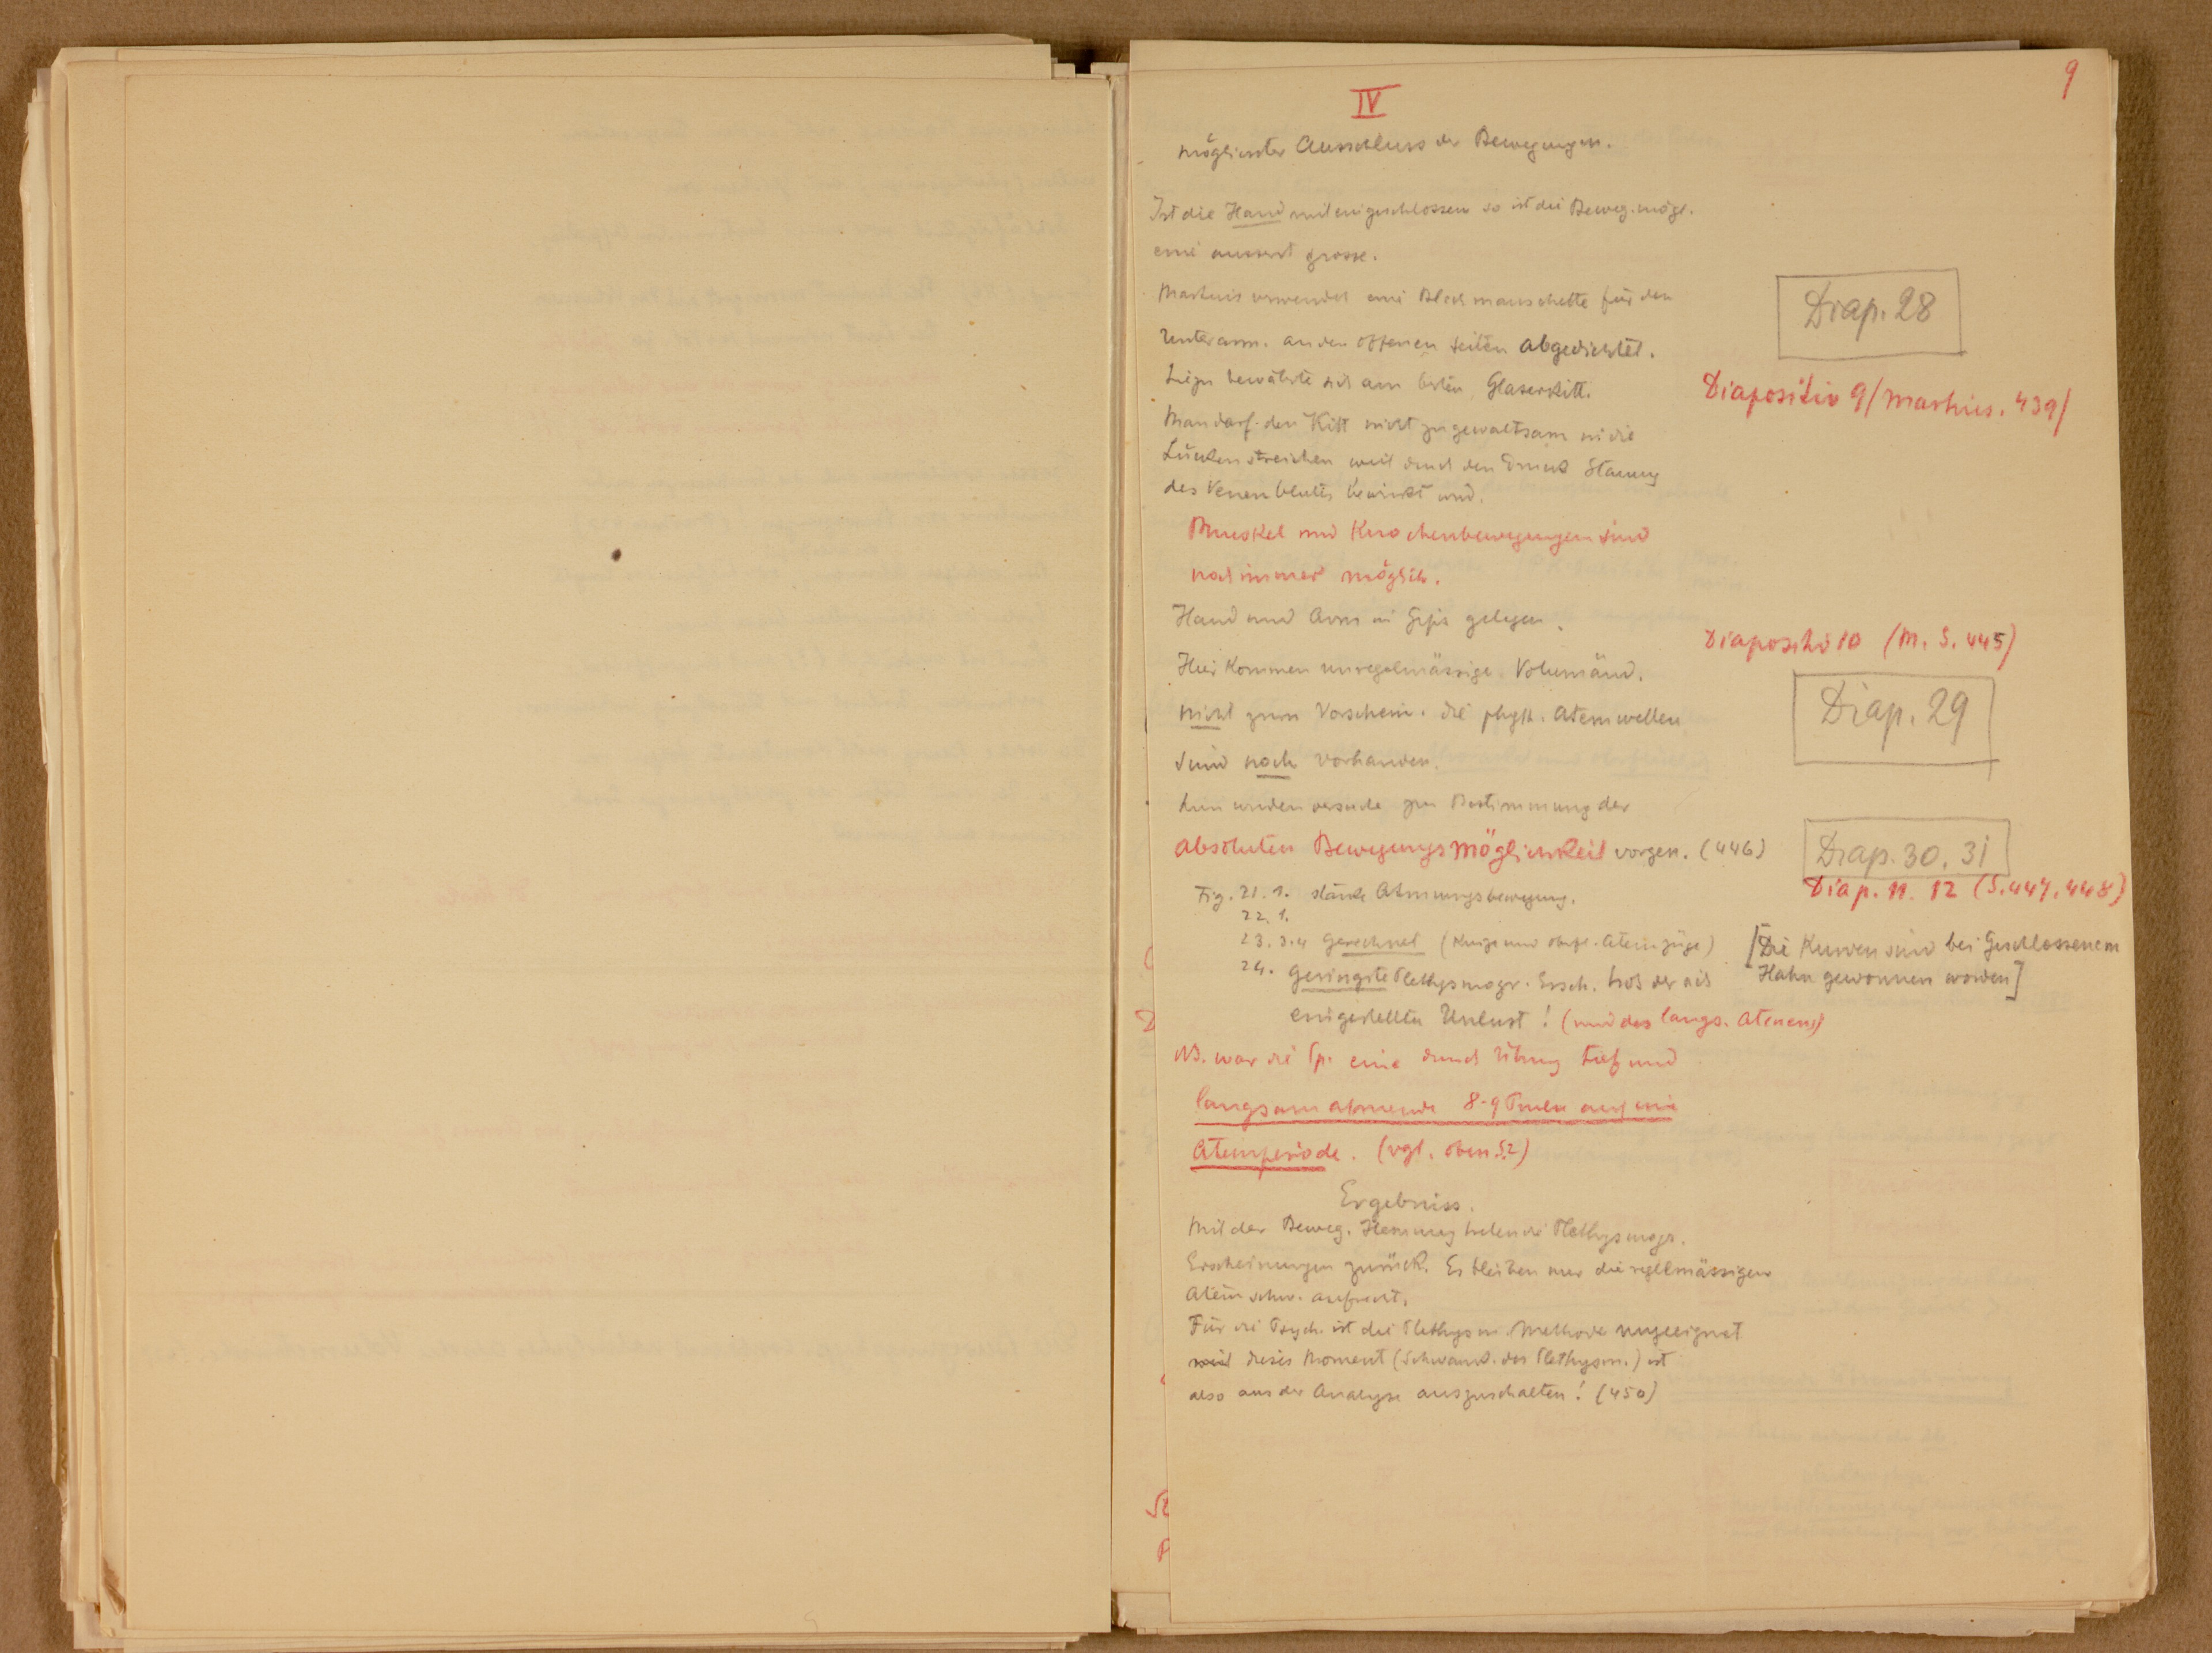 9
IV
möglichster Ausschluss der Bewegungen.
Ist die Hand mit eingeschlossen so ist die Beweg. mögl.
eine äusserst grosse.
Martius verwendet eine Blechmanschette für den
Unterarm. an den offenen Seiten abgedichtet.
Diap. 28
bewährte sich am besten Glaserkitt.
Diapositiv 9 / Martius. 439/
Man darf den Kitt nicht zu gewaltsam in die
Lücken streichen weil durch den Druck Stauung
des Venenblutes bewirkt wird.
Muskel und Knochenbewegungen sind
noch immer möglich.
Hand und Arm in Gips gelegen.
Diapositiv 10 (M. S. 445)
Hier kommen unregelmässige Volumänd.
nicht zum Vorschein. die phys. Atemwellen
Diap. 29
sind noch vorhanden.
Nun wurden Versuche zur Bestimmung der
absoluten Bewegungsmöglichkeit vorgen. (446)
Diap. 30. 31
Diap. 11. 12 (S. 447, 448)
Fig. 21. 1. starke Atmungsbewegung.
22. 1.
23. 3.4 (kurze und oberfl. Atemzüge)
[Die Kurven sind bei Geschlossenem
Hahn gewonnen worden]
24. geringste Plethysmogr. Ersch. trotz der sich
eingestellten Unlust! (und des langs. Atmens)
NB. war die Vp. eine durch Übung tief und
langsam atmende 8-9 Pulse auf eine
Atemperiode. (vgl. oben S. 2)
Ergebniss.
Mit der Beweg. Hemmung treten die Plethysmogr.
Erscheinungen zurück. Es bleiben nur die regelmässigen
Atem schw. aufrecht.
Für die Psych. ist die Plethysm. Methode ungeeignet
dieses Moment (Schwank. des Plethysm.) ist
also aus der Analyse auszuschalten! (450)